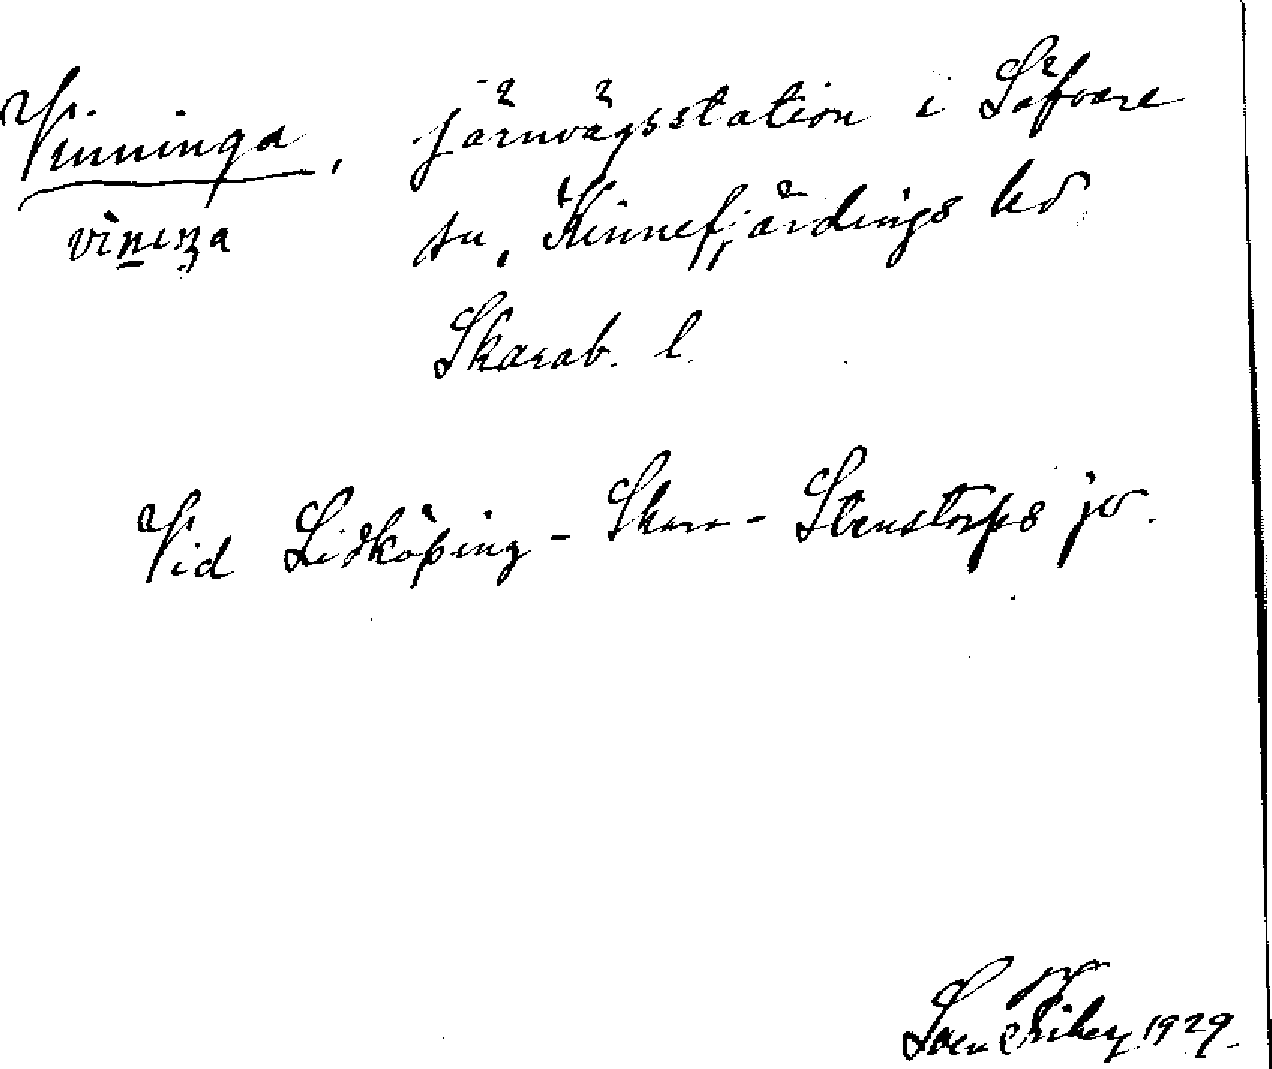 Vinninga, järnvägsstation i Säfvare
vìnɩŋa sn, Kinnefjärdings hd
Skarab. l.
Vid Lidköping - Skara - Stenstorps jv.
Sven 1929.